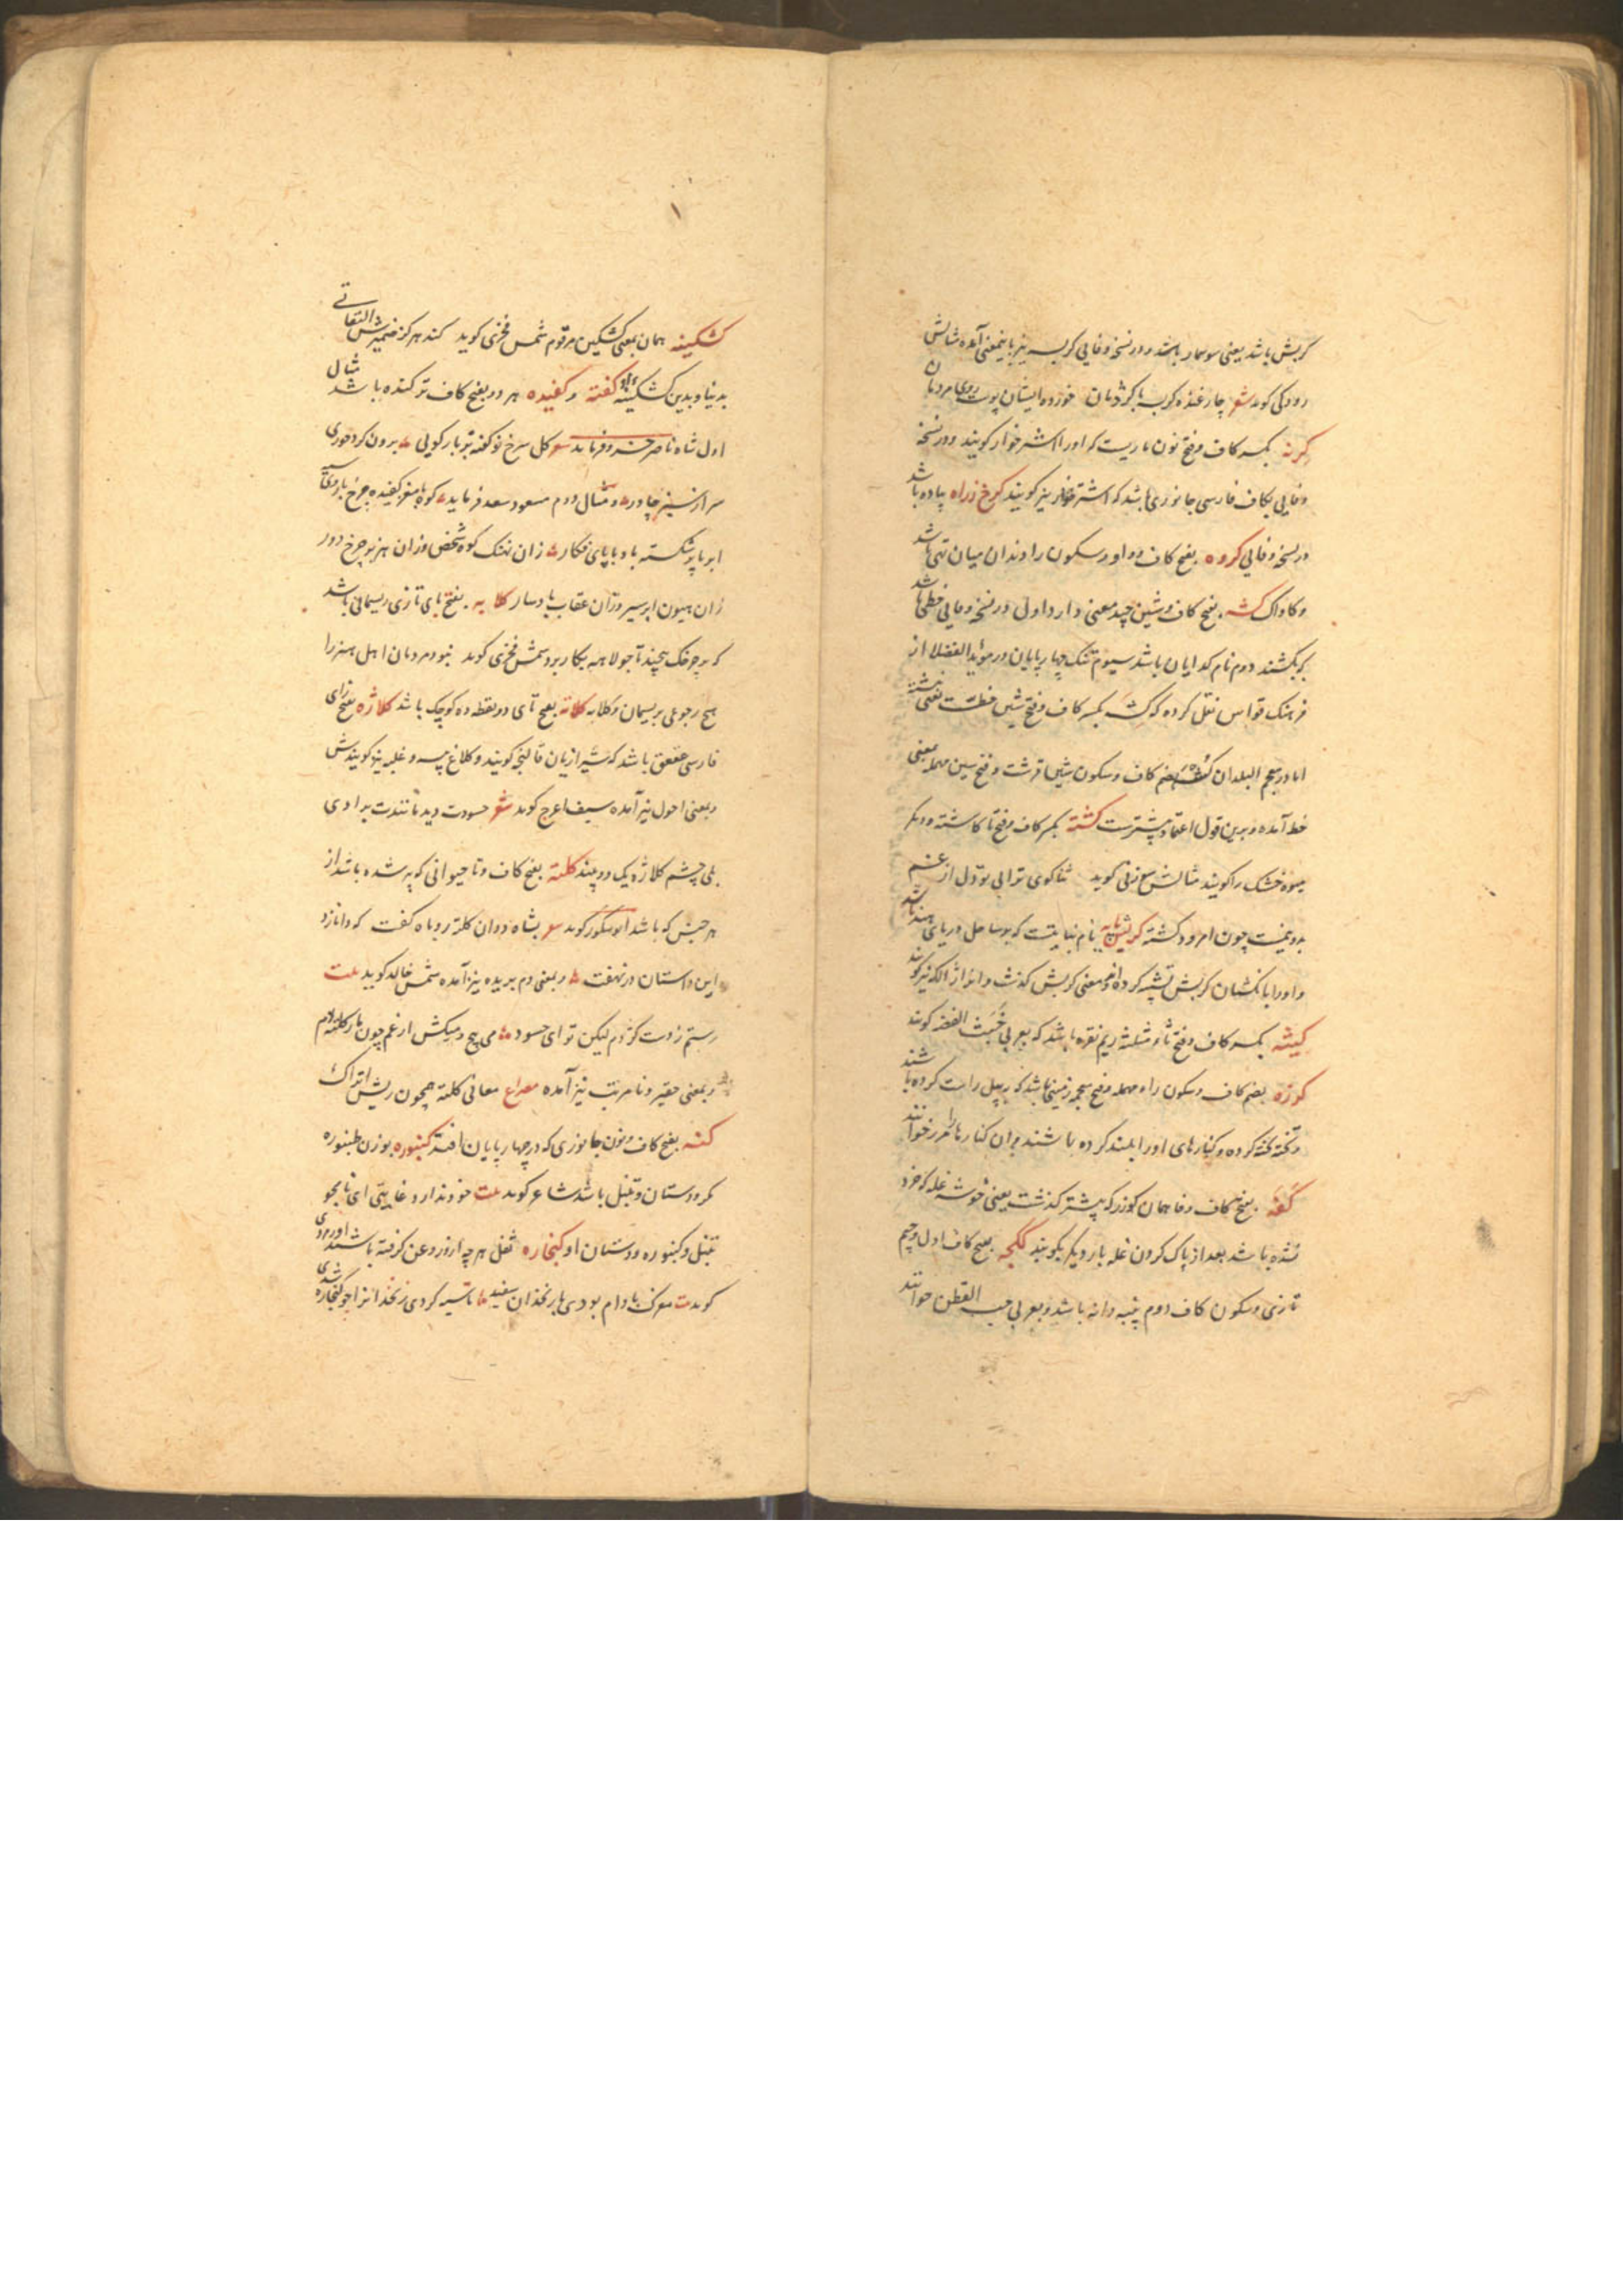 کربش باشد یعنی سوسمار باشد و در نسخه وفایی کربسه نیز باینمعنی آمده مثالش
رودکی کوید شعر چار غنده کربسه با کژدمان خورد ایشان پوست روی مردمان
کرنه بکسر کاف و فتح نون ماریست که او را اشترخوار کویند و در نسخه
وفایی بکاف فارسی جانوری باشد که اشترخوار نیز کویند کرخ زراه پیاده باشد
در نسخه وفایی کروه بفتح کاف و واو و سکون را دندان میان تهی باشد
و کاواک کشه بفتح کاف و شین چند معنی دارد اول در نسخه وفایی خطی باشد
که بکشند دوم نام کدایان باشد سیوم تنک چهارپایان در مؤید الفضلا از
فرهنک قواس نقل کرده که کشه بکسر کاف و فتح شین خطست یعنی نبشته
اما در معجم البلدان بضم کاف و سکون شین قرشت و فتح سین مهمله بمعنی
خط آمده و برین قول اعتماد بیشترست کشته بکسر کاف و فتح تا کاشته و دیکر
میوه خشک را کویند مثالش کوید ثنا کوی ترا بی تو دل از غم
بدو نیمست چون امرود کشته کربش پایه نام نباتیست که بر ساحل دریای هند باشد
و او را بانکشتان کربش تشبیه کرده اند و معنی کربش کذشت و انرا نیز کویند
کیثه بکسر کاف و فتح ثاء مثلثه ریم نقره باشد که بعربی خبث الفضه کویند
کورزه بضم کاف و سکون راء مهمله و فتح معجمه زمینی باشد که به بیل راست کرده باشند
و تخته تخته کرده و کنارهای او را بلند کرده باشند و ان کنارها را مرز خوانند
کفه بفتح کاف و فا همان کوزر که پیشتر کذشت یعنی خوشه غله که خرد
نشده باشد بعد از پاک کردن غله بار دیکر بکوبند ککجه بفتح کاف اول و جیم
تازی و سکون کاف دوم پنبه دانه باشد و بعربی حب القطن خوانند
کشکینه همان بمعنی کشکین مرقوم شمس فخری کوید کند هر کز ضمیرش التفاتی
بدنیا و بدین کشکینه او کفته و کفیده هر دو بفتح کاف ترکیده باشد مثال
اول شاه ناصر خسرو فرماید شعر کل سرخ نو کفته بر بار کویی برون کرد حوری
سر از سبز چادر و مثال دوم مسعود سعد فرماید کوه با مغز کفیده چرخ با روی سیه
ابر با پر شکسته باد با پای فکار زان نهنک کوه شخص وزان هزبر چرخ دور
زان هیون ابر سیر وزان عقاب باد سار کلابه بفتح بای تازی ریسمانی باشد
که بر چرخک پیچند تا جولاهه بکار برد شمس فخری کوید نبود مردمان اهل هنر را
هیچ رجوعی بریسمان و کلابه کلاته بفتح تای دو نقطه ده کوچک باشد کلاژه بفتح زای
فارسی عقعق باشد که شیرازیان قالنجه کویند و کلاغ پیسه و غلبه نیز کویندش
و بمعنی احول نیز آمده سیف اعرج کوید شعر حسودت دید مانندت برادی
بلی چشم کلاژه یک دو بیند کلته بفتح کاف و تا حیوانی که پیر شده باشد از
هر جنس که باشد ابوشکور کوید شعر بشاه ددان کلته روباه کفت که دانا زد
این داستان در نهفت و بمعنی دم بریده نیز آمده شمس خالد کوید بیت
رستم ز دست کژدم لیکن تو ای حسود می پیچ و میکش از غم چون مار کلته دم
و بمعنی حقیر و نامرتب نیز آمده مصراع معانی کلته همچون ریش اتراک
کنه بفتح کاف و نون جانوری که در چهارپایان افتد کنبوره بوزن طنبوره
مکر و دستان و تنبل باشد شاعر کوید بیت خود ندارد غایتی ای نامجو
تنبل و کنبوره و دستان او کنجاره ثفل هر چه از و روغن کرفته باشند
کوید بیت معرک بادام بودی با زنخدان سفید تا سیه کردی زنخدانرا چو کنجاره شدی